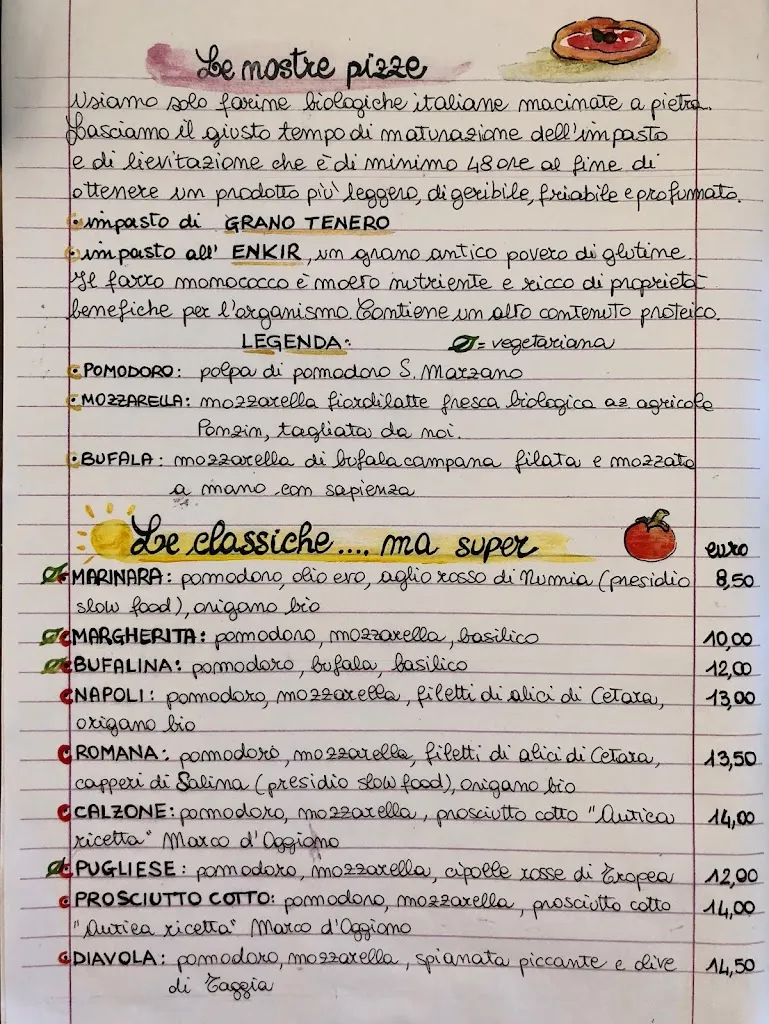 Le nostre pizze
Usiamo solo farine biologiche italiane macinate a pietra.
Lasciamo il giusto tempo di maturazione dell'impasto
e di lievitazione che è di minimo 48 ore al fine di
ottenere un prodotto più leggero, digeribile, friabile e profumato.
• impasto di GRANO TENERO
• impasto all' ENKIR, un grano antico povero di glutine.
Il farro monococco è molto nutriente e ricco di proprietà
benefiche per l'organismo. Contiene un alto contenuto proteico.
LEGENDA: = vegetariana
• POMODORO: polpa di pomodoro S. Marzano
• MOZZARELLA: mozzarella fiordilatte fresca biologica az agricola
Ponzin, tagliata da noi.
• BUFALA: mozzarella di bufala campana filata e mozzata
a mano con sapienza
Le classiche.... ma super euro
MARINARA: pomodoro, olio evo, aglio rosso di Numia (presidio 8,50
slow food), origano bio
MARGHERITA: pomodoro, mozzarella, basilico 10,00
BUFALINA: pomodoro, bufala, basilico 12,00
NAPOLI: pomodoro, mozzarella, filetti di alici di Cetara, 13,00
origano bio
ROMANA: pomodoro, mozzarella, filetti di alici di Cetara, 13,50
capperi di Salina (presidio slow food), origano bio
CALZONE: pomodoro, mozzarella, prosciutto cotto "Antica 14,00
ricetta" Marco d'Oggiono
PUGLIESE: pomodoro, mozzarella, cipolle rosse di Tropea 12,00
PROSCIUTTO COTTO: pomodoro, mozzarella, prosciutto cotto 14,00
"Antica ricetta" Marco d'Oggiono
DIAVOLA: pomodoro, mozzarella, spianata piccante e olive 14,50
di Taggia